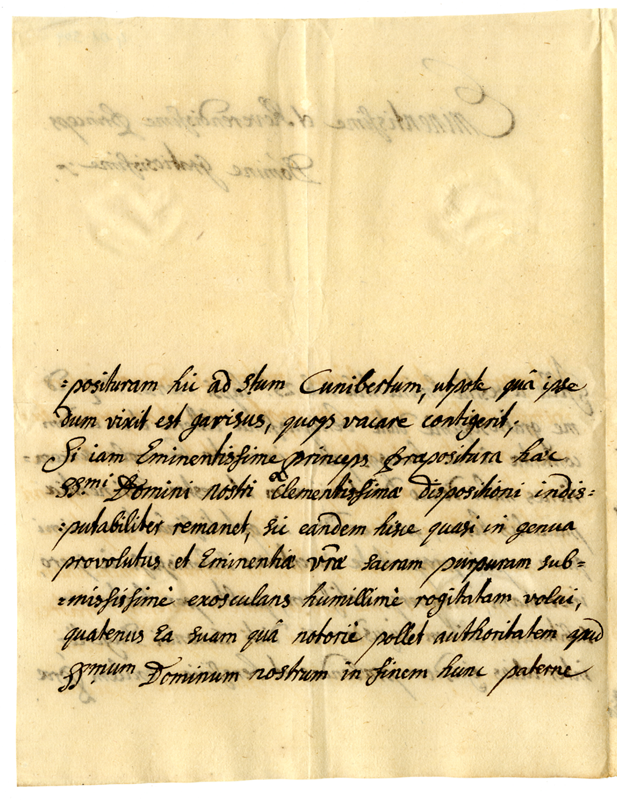 =posituram hic ad Stum Cunibertum, utpote quâ ipse
dum vixit est gavisus, quoqs vacare contigerit;
Si iam Eminentissime princeps præpositura hæc
SSmi Domini nostri Clementissimæ dispositioni indis=
=putabiliter remanet, sic eandem hisce quasi in genua
provolutus et Eminentiæ vræ sacram purpuram sub=
=missisimè exosculans humillimè rogitatam volui,
quatenus Ea suam quâ notoriè pollet authoritatem apud
SSmum Dominum nostrum in finem hunc paterne